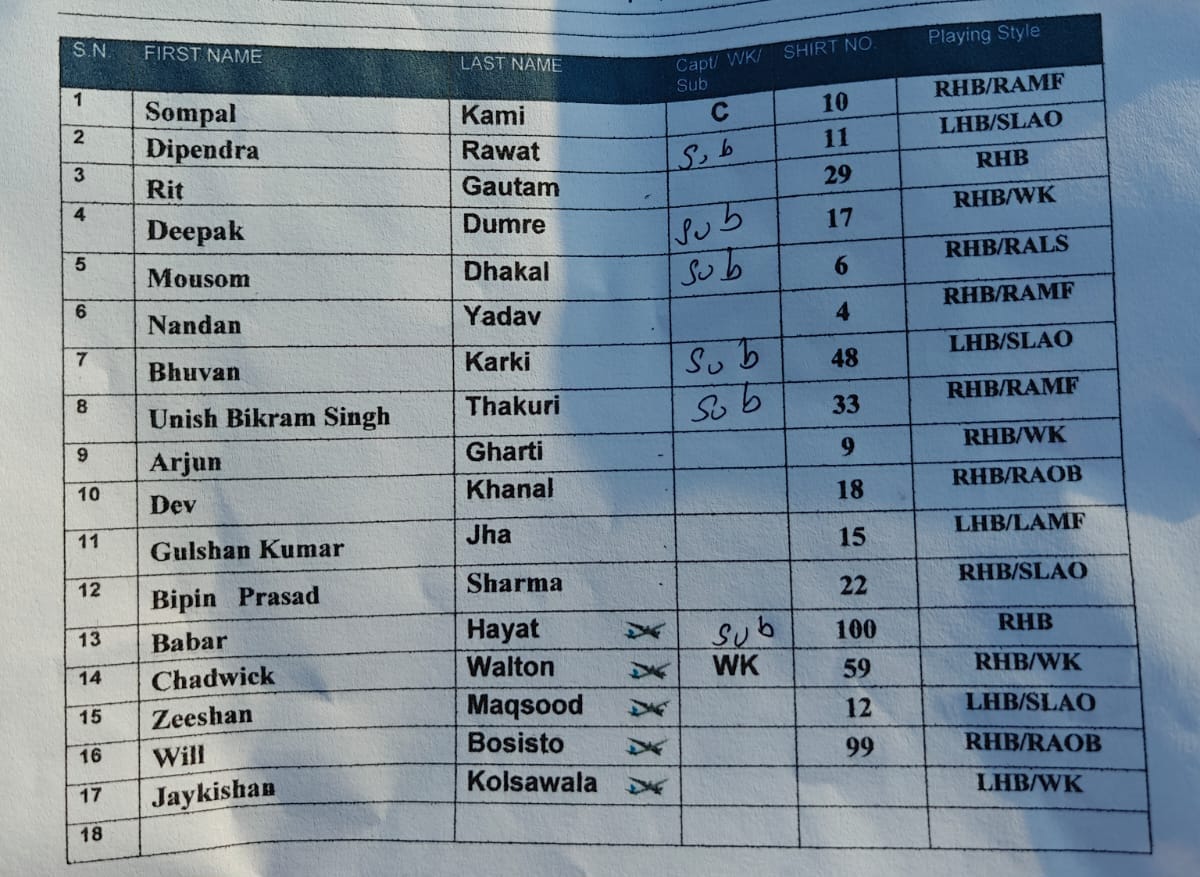 S.N. FIRST NAME LAST NAME Capt/ WK/ Sub SHIRT NO. Playing Style
1 Sompal Kami C 10 RHB/RAMF
2 Dipendra Rawat Sub 11 LHB/SLAO
3 Rit Gautam 29 RHB
4 Deepak Dumre Sub 17 RHB/WK
5 Mousom Dhakal Sub 6 RHB/RALS
6 Nandan Yadav 4 RHB/RAMF
7 Bhuvan Karki Sub 48 LHB/SLAO
8 Unish Bikram Singh Thakuri Sub 33 RHB/RAMF
9 Arjun Gharti 9 RHB/WK
10 Dev Khanal 18 RHB/RAOB
11 Gulshan Kumar Jha 15 LHB/LAMF
12 Bipin Prasad Sharma 22 RHB/SLAO
13 Babar Hayat Sub 100 RHB
14 Chadwick Walton WK 59 RHB/WK
15 Zeeshan Maqsood 12 LHB/SLAO
16 Will Bosisto 99 RHB/RAOB
17 Jaykishan Kolsawala LHB/WK
18